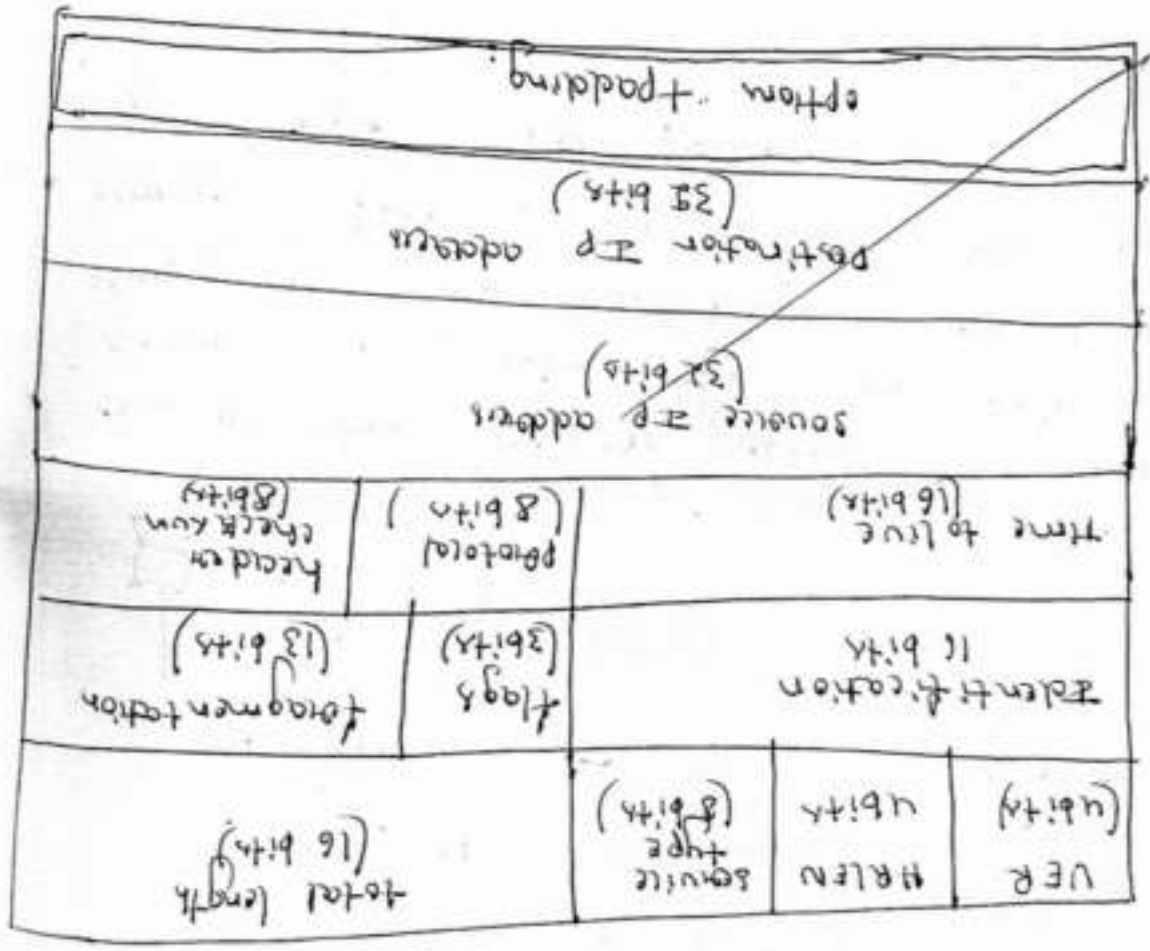 VER
(4bits)
HRLEN
4bits
service
type
(8bits)
total length
(16 bits)
Identification
16 bits
flags
(3bits)
fragmentation
(13 bits)
Time to live
(16 bits)
protocol
(8 bits)
header
checksum
(8bits)
source IP address
(32 bits)
Destination IP address
(32 bits)
option + padding